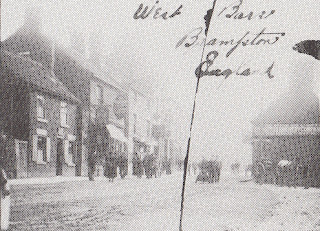 West Barr
Brampton
England